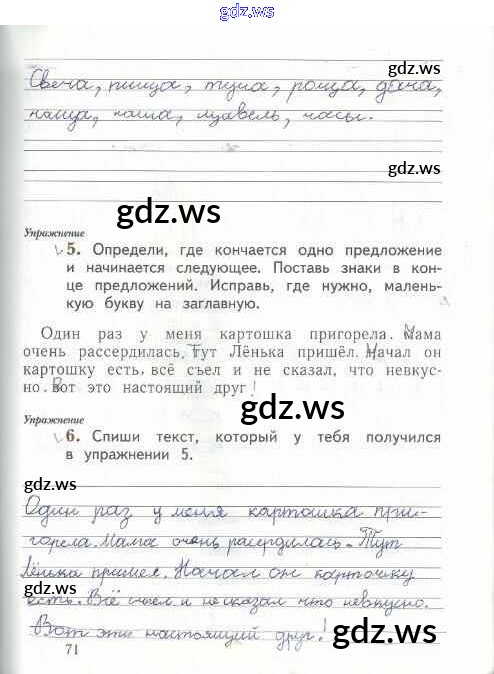 gdz.ws
gdz.ws
Свеча, пища, туча, роща, дача,
чаща, чаша, щавель, часы.
gdz.ws
gdz.ws
Упражнение
5. Определи, где кончается одно предложение
и начинается следующее. Поставь знаки в кон-
це предложений. Исправь, где нужно, малень-
кую букву на заглавную.
Один раз у меня картошка пригорела. Мама
очень рассердилась. Тут Лёнька пришёл. Начал он
картошку есть, всё съел и не сказал, что невкус-
но. Вот это настоящий друг!
gdz.ws
Упражнение
6. Спиши текст, который у тебя получился
в упражнении 5.
gdz.ws
gdz.ws
Один раз у меня картошка при-
горела. Мама очень расердилась. Тут
Лёнька пришел. Начал он карточку
есть. Всё съел и не сказал что невкусно.
Вот это настоящий друг!
gdz.ws
gdz.ws
71
gdz.ws